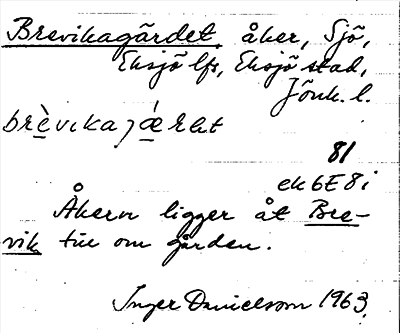 Brevikagärdet åker, Sjö,
Eksjö lfs, Eksjö stad,
Jönk. l.
81
ek 6E 8i
Åkern ligger åt Bre-
vik till om gården.
Inger Danielsson 1963.